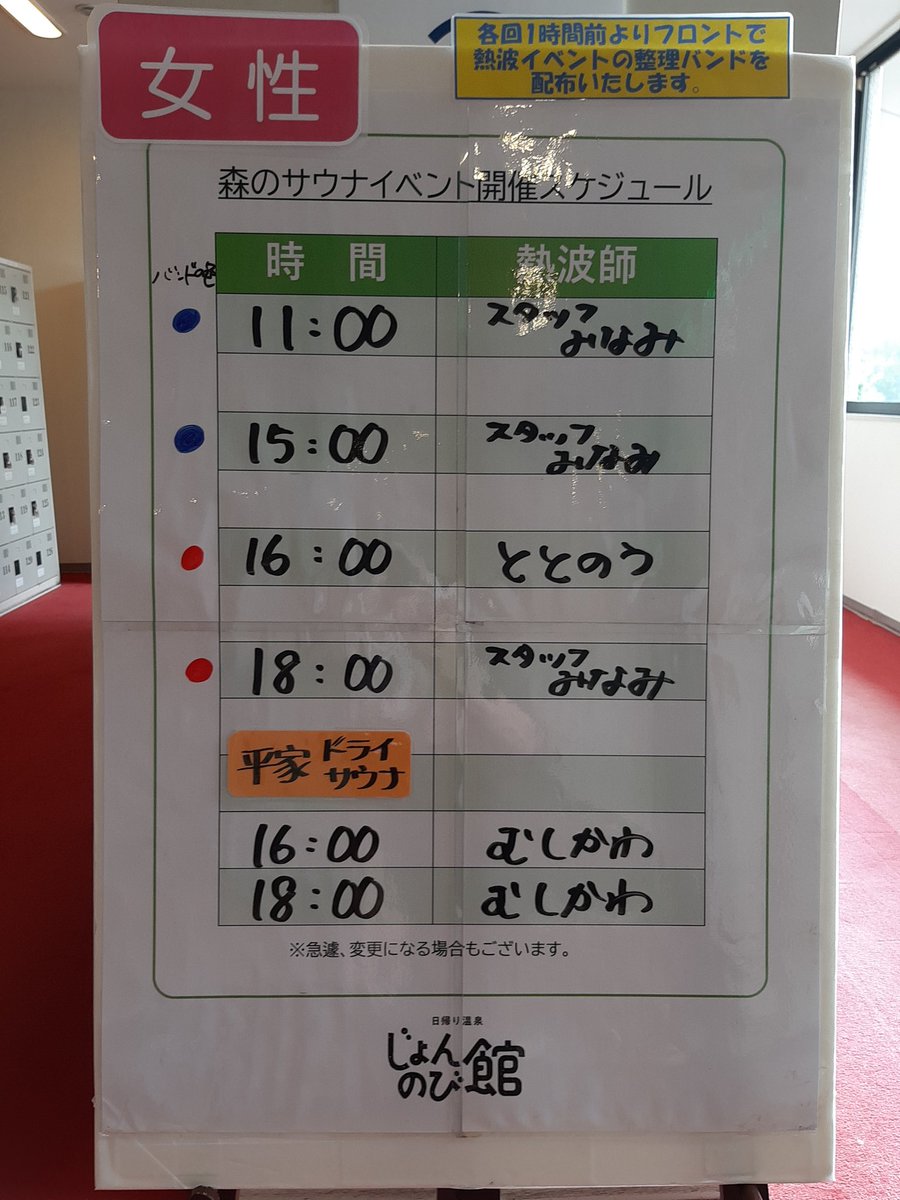 女性
各回1時間前よりフロントで
熱波イベントの整理バンドを
配布いたします。
森のサウナイベント開催スケジュール
バンドの色
時間 熱波師
11:00 スタッフ
みなみ
15:00 スタッフ
みなみ
16:00 ととのう
18:00 スタッフ
みなみ
平家 ドライ
サウナ
16:00 むしかわ
18:00 むしかわ
※急遽、変更になる場合もございます。
日帰り温泉
じょん
のび館